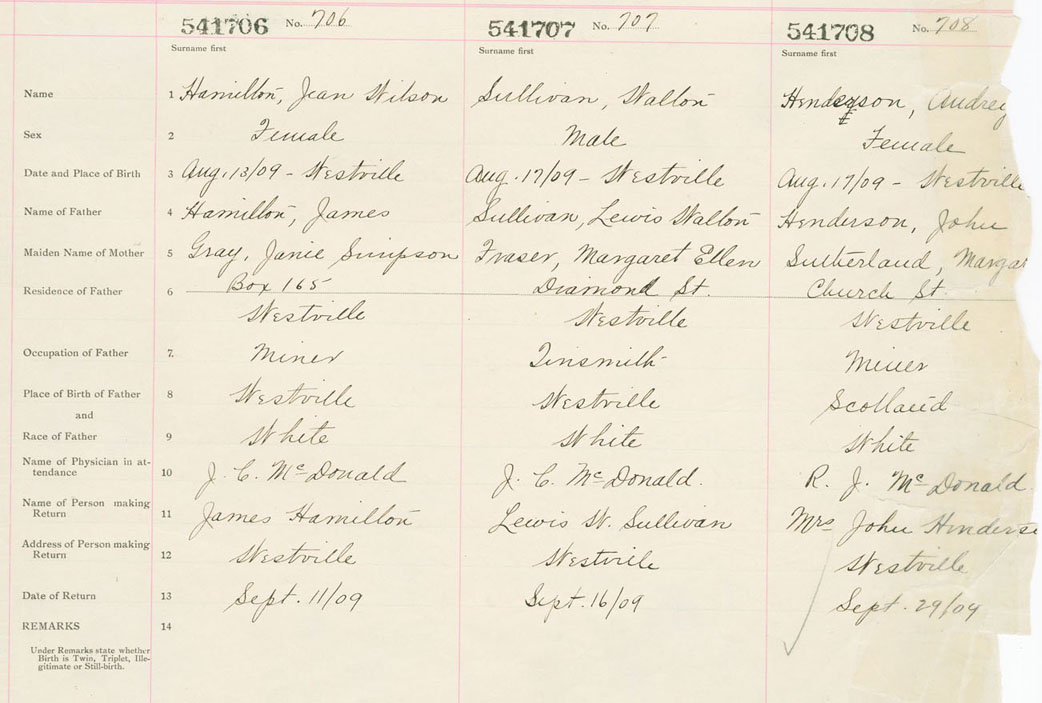 541706 No. 706 541707 No. 707 541708 No. 708
Surname first Surname first Surname first
Name 1 Hamilton, Jean Wilson Sullivan, Walton Henderson, Audrey
E
Sex 2 Female Male Female
Date and Place of Birth 3 Aug. 13/09 - Westville Aug. 17/09 - Westville Aug. 17/09 - Westville
Name of Father 4 Hamilton, James Sullivan, Lewis Walton Henderson, John
Maiden Name of Mother 5 Gray, Janie Simpson Fraser, Margaret Ellen Sutherland, Margar
Residence of Father 6 Box 165 Diamond St. Church St.
Westville Westville Westville
Occupation of Father 7. Miner Tinsmith Miner
Place of Birth of Father 8 Westville Westville Scotland
and
Race of Father 9 White White White
Name of Physician in at-
tendance 10 J. C. McDonald J. C. McDonald. R. J. McDonald
Name of Person making
Return 11 James Hamilton Lewis W. Sullivan Mrs John Henderso
Address of Person making
Return 12 Westville Westville Westville
Date of Return 13 Sept. 11/09 Sept. 16/09 Sept. 29/09
REMARKS 14
Under Remarks state whether
Birth is Twin, Triplet, Ille-
gitimate or Still-birth.